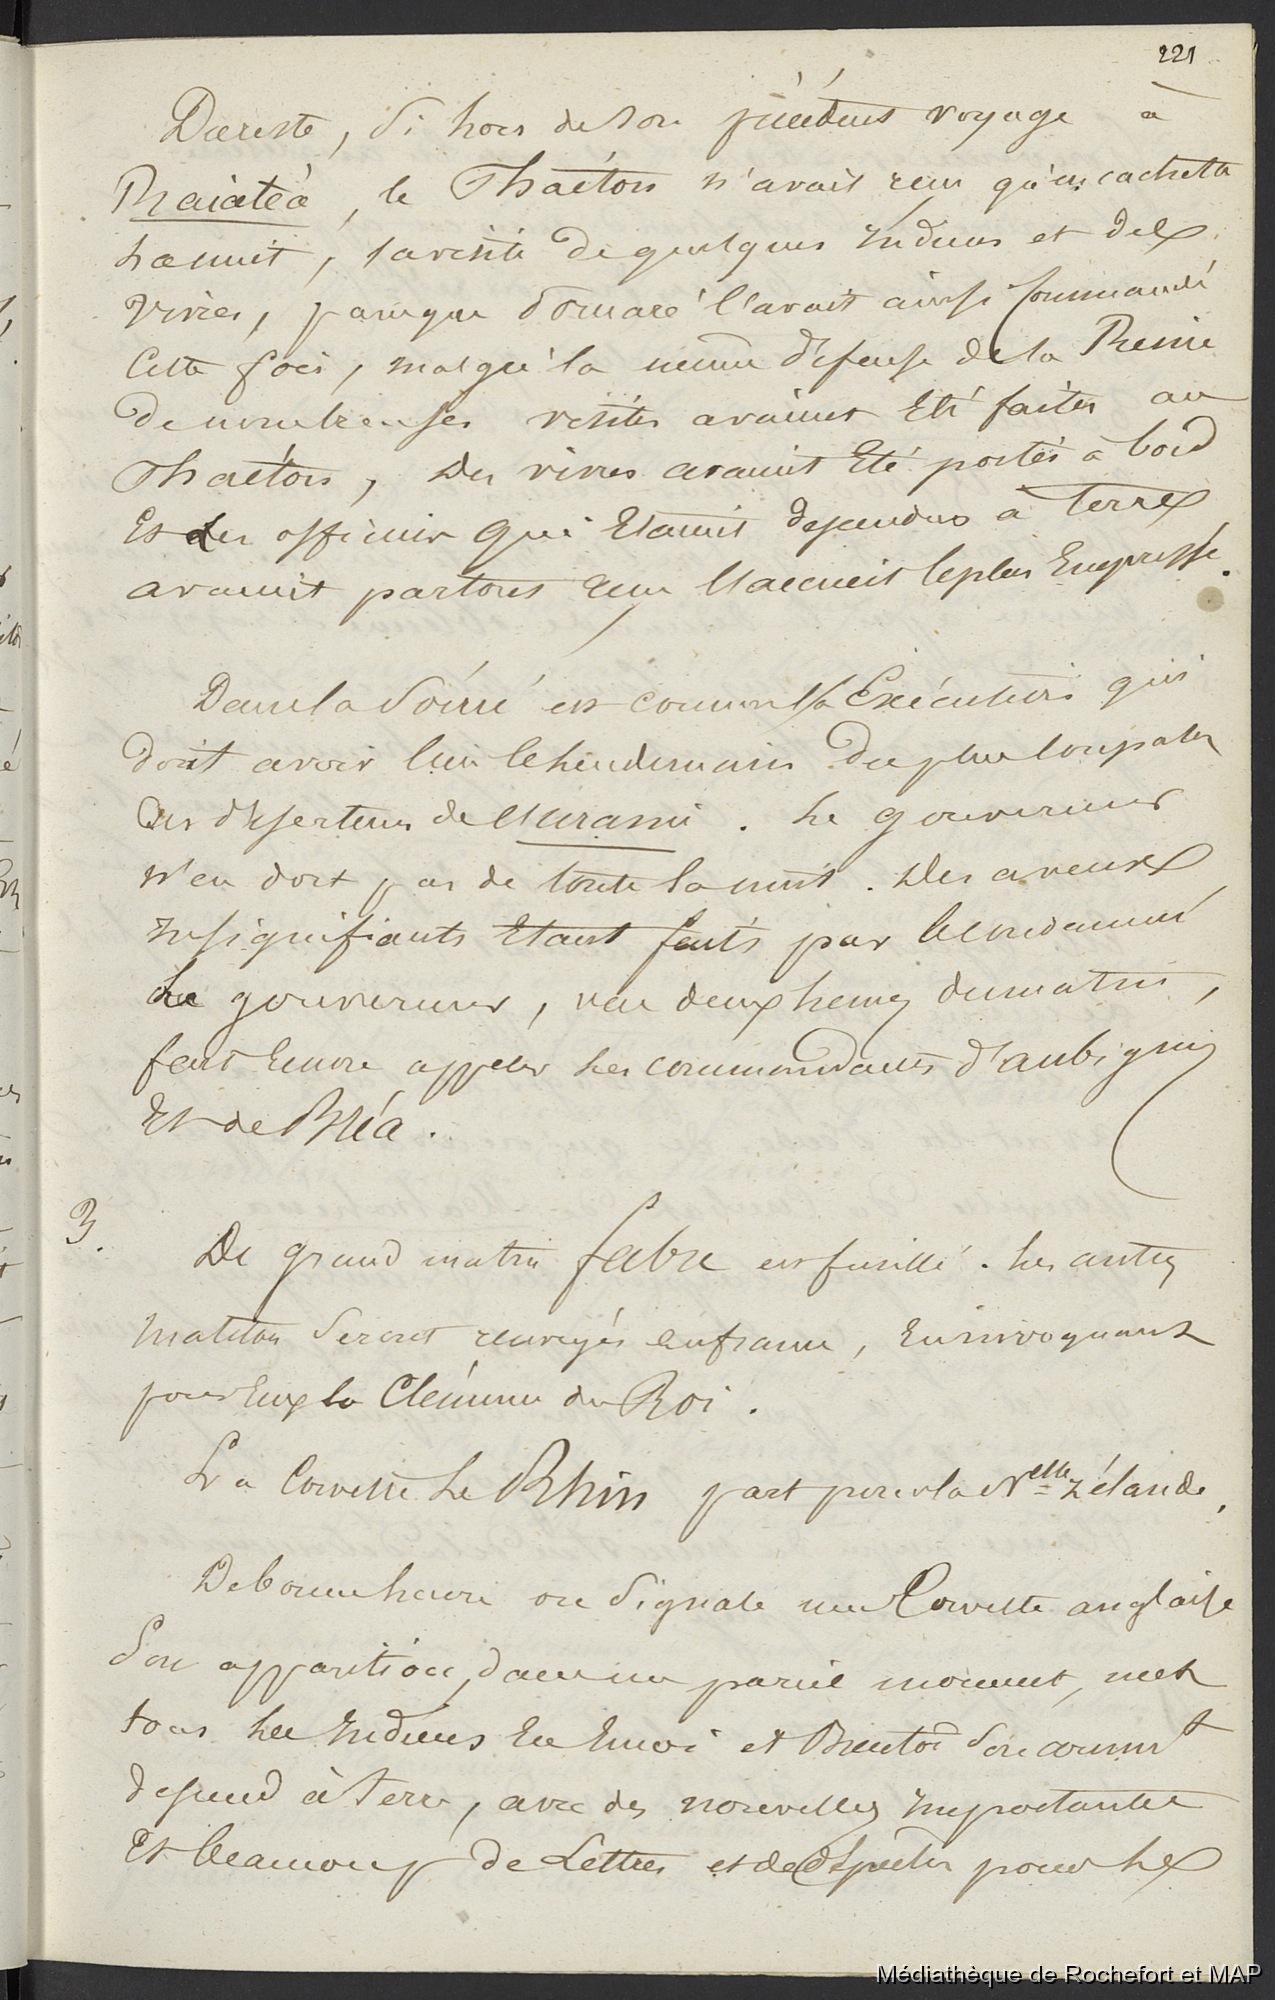 221
Dureste, si hors de son précédent voyage à
Raiatéa, le Phaéton n'avait reçu qu'en cachette
La nuit, la visite de quelques Indiens et des
vivres, parceque Pomaré l'avait ainsi commandé
Cette fois, malgré la même défense de la Reine
De nombreuses visites avaient été faites au
Phaéton, des vivres avaient été portés à bord
Et les officiers qui étaient descendus à terre
avaient partout reçu l'accueil le plus Empressé.
Dans la soirée est connue l'Exécution qui
doit avoir lieu le lendemain du plus coupable
Des déserteurs de l'Uranie. Le gouverneur
n'en dort pas de toute la nuit. Des aveux
insignifiants étant faits par le condamné
Le gouverneur, vers deux heures du matin,
fait encore appeler les commandants d'aubigny
Et de Bréa.
3.
De grand matin fabre est fusillé. Les autres
matelots seront renvoyés en france, en invoquant
pour Eux la Clémence du Roi.
La Corvette Le Rhin part pour la Nelle Zélande.
De bonne heure on signale une Corvette anglaise
Son apparition, dans un pareil moment, met
tous les Indiens en Emoi et Bientôt son commt
descend à terre, avec des nouvelles importantes
Et beaucoup de Lettres et de dépêches pour les
Médiathèque de Rochefort et MAP